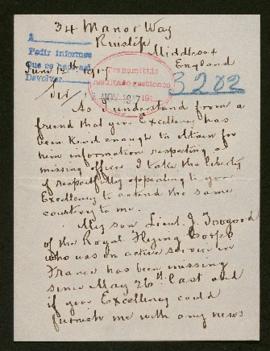 34 Manor Way
Ruislip
Middlesex
England
A
Pedir informes
que se han
Devolver
June 12th 1917
3202
Sir,
As I understand from a
friend that your Excellency has
been kind enough to obtain for
him information respecting a
missing officer I take the liberty
of respectfully appealing to your
Excellency to extend the same
courtesy to me.
My son Lieut. J.
of the Royal Flying Corps
who was on active service in
France has been missing
since May 26th last and
if your Excellency could
furnish me with any news